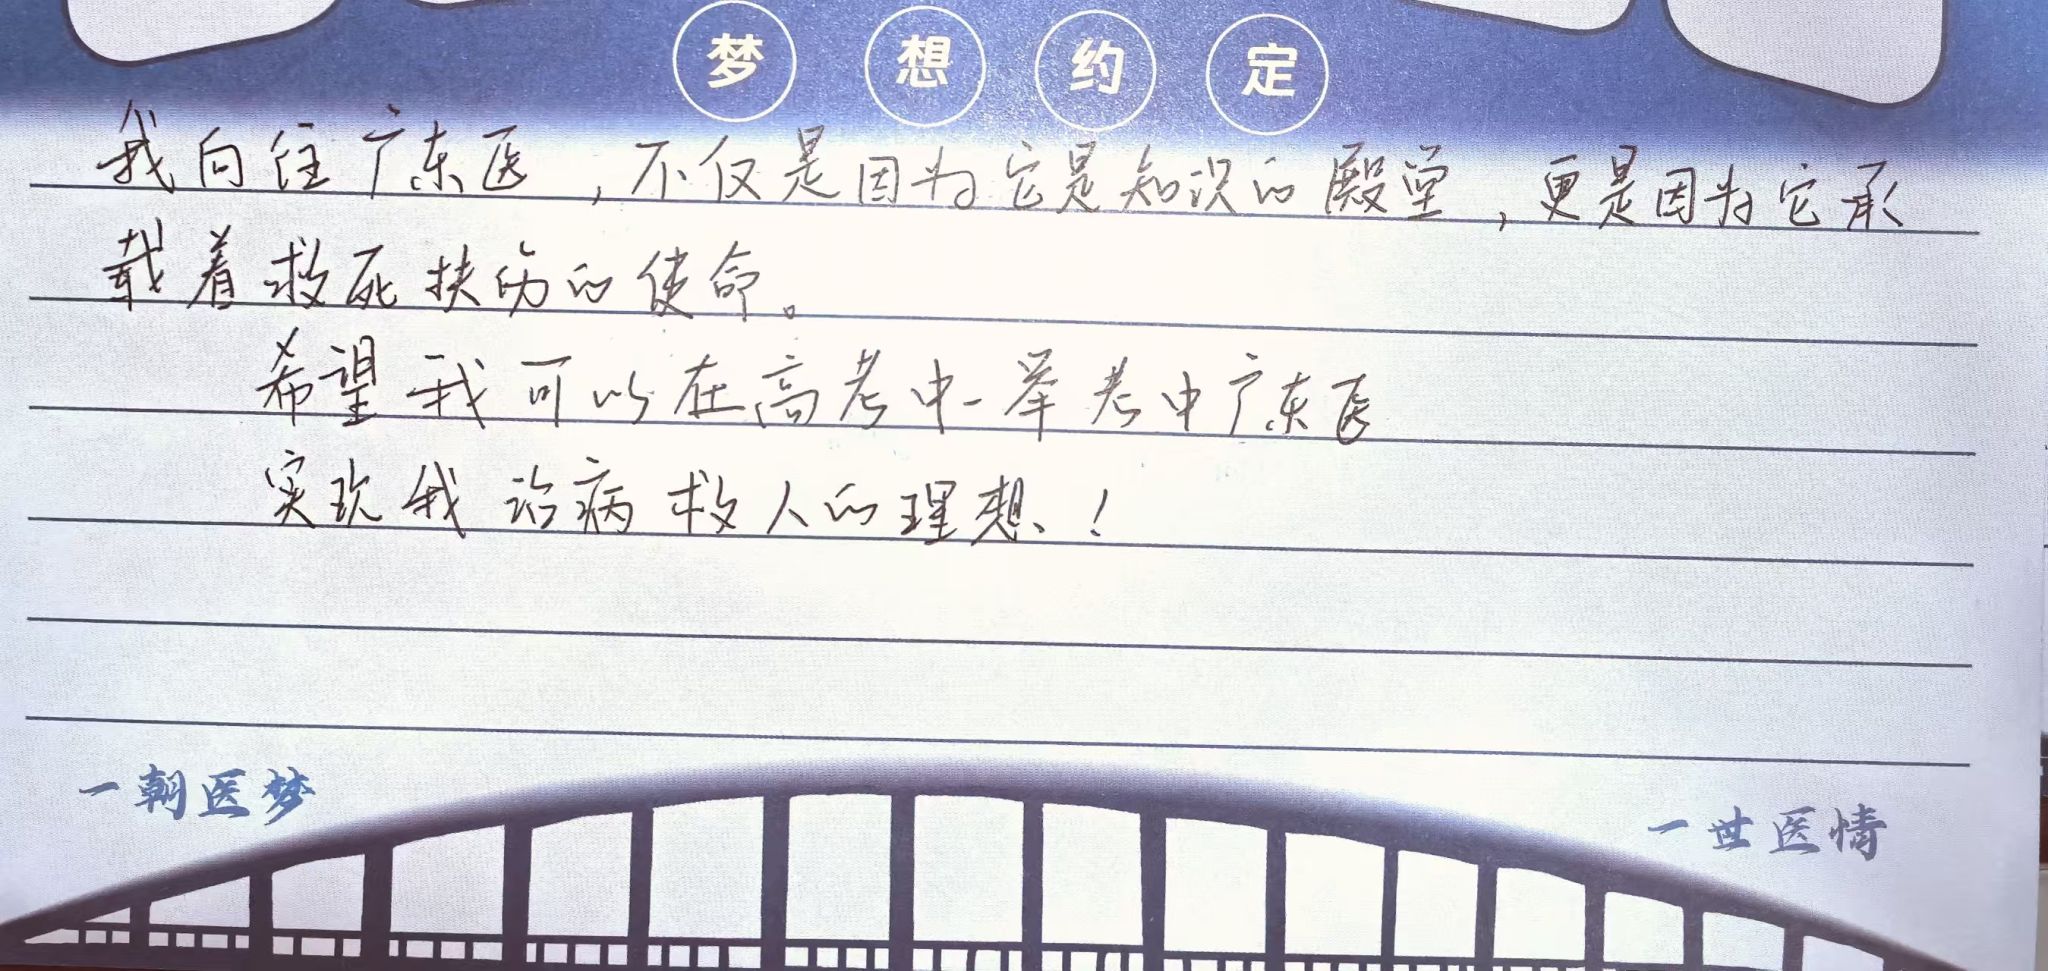 梦想约定
我向往广东医，不仅是因为它是知识的殿堂，更是因为它承
载着救死扶伤的使命。
希望我可以在高考中一举考中广东医
实现我治病救人的理想！
一朝医梦
一世医情